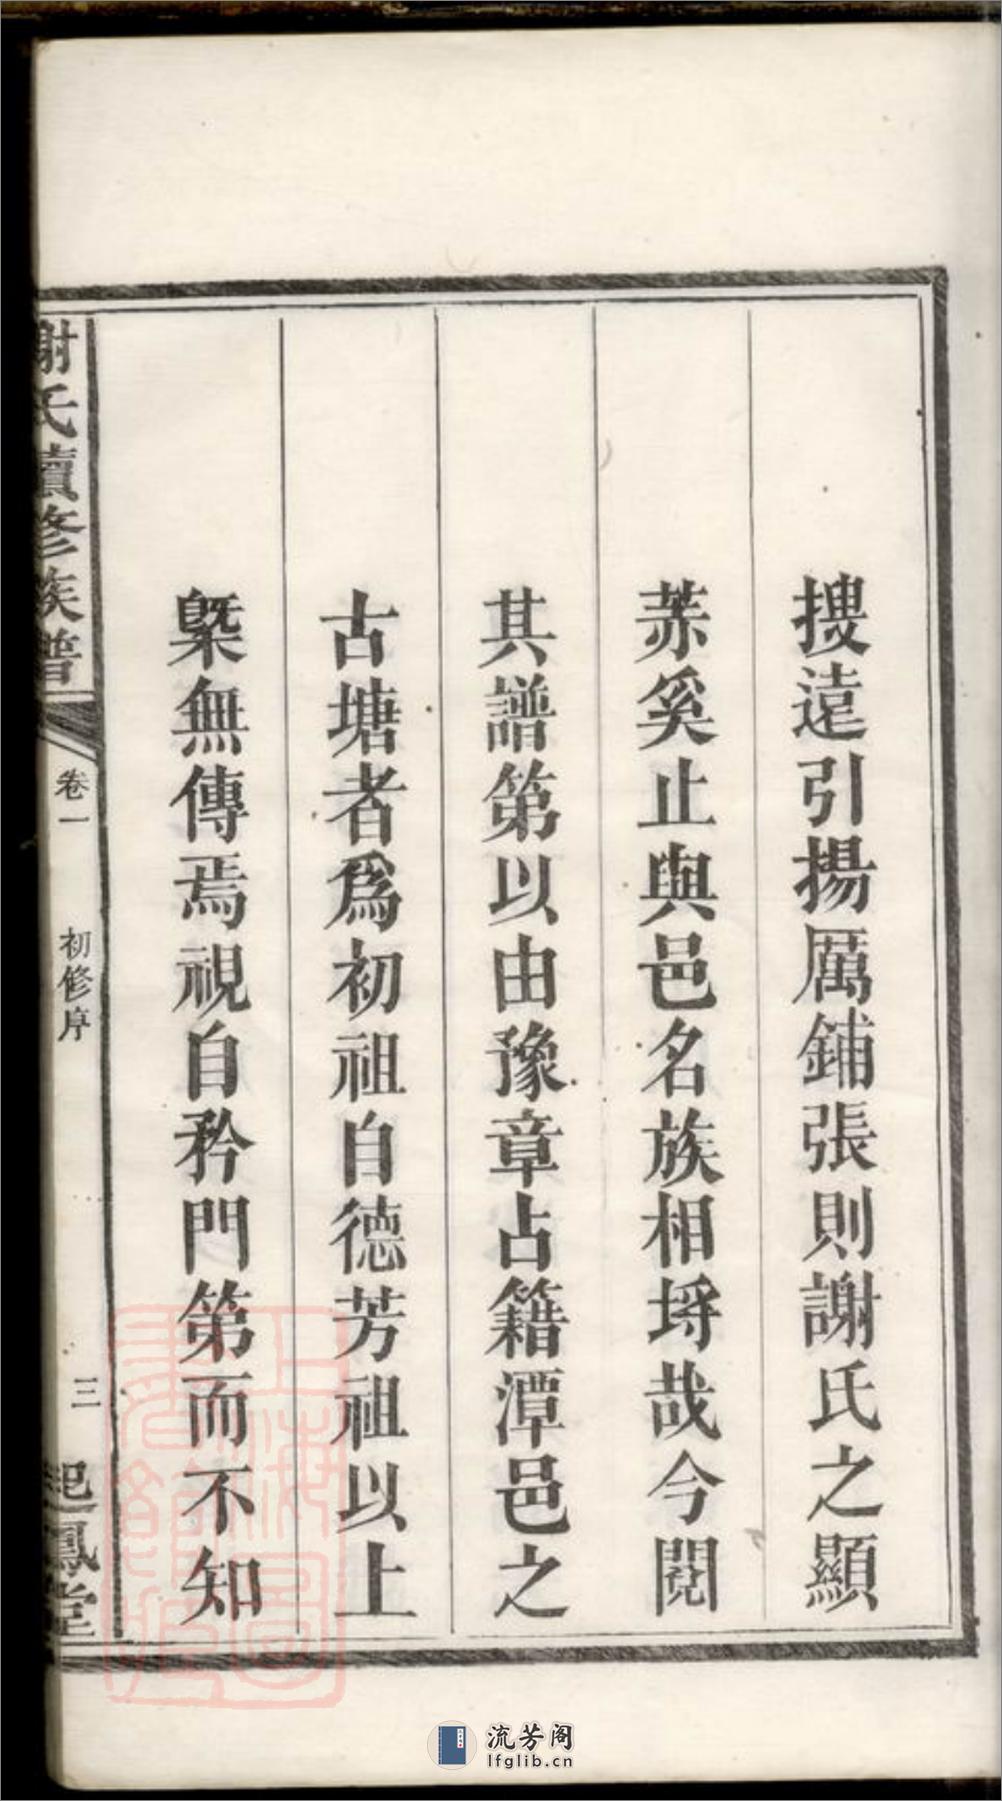 搜遠引揚厲鋪張則謝氏之顯
赫奚止與邑名族相埒哉今閱
其譜第以由豫章占籍潭邑之
古塘者爲初祖自德芳祖以上
槩無傳焉視自矜門第而不知
謝氏續修族譜
卷一
初修序
三
起鳳堂
上海圖書館藏
流芳阁
lfglib.cn